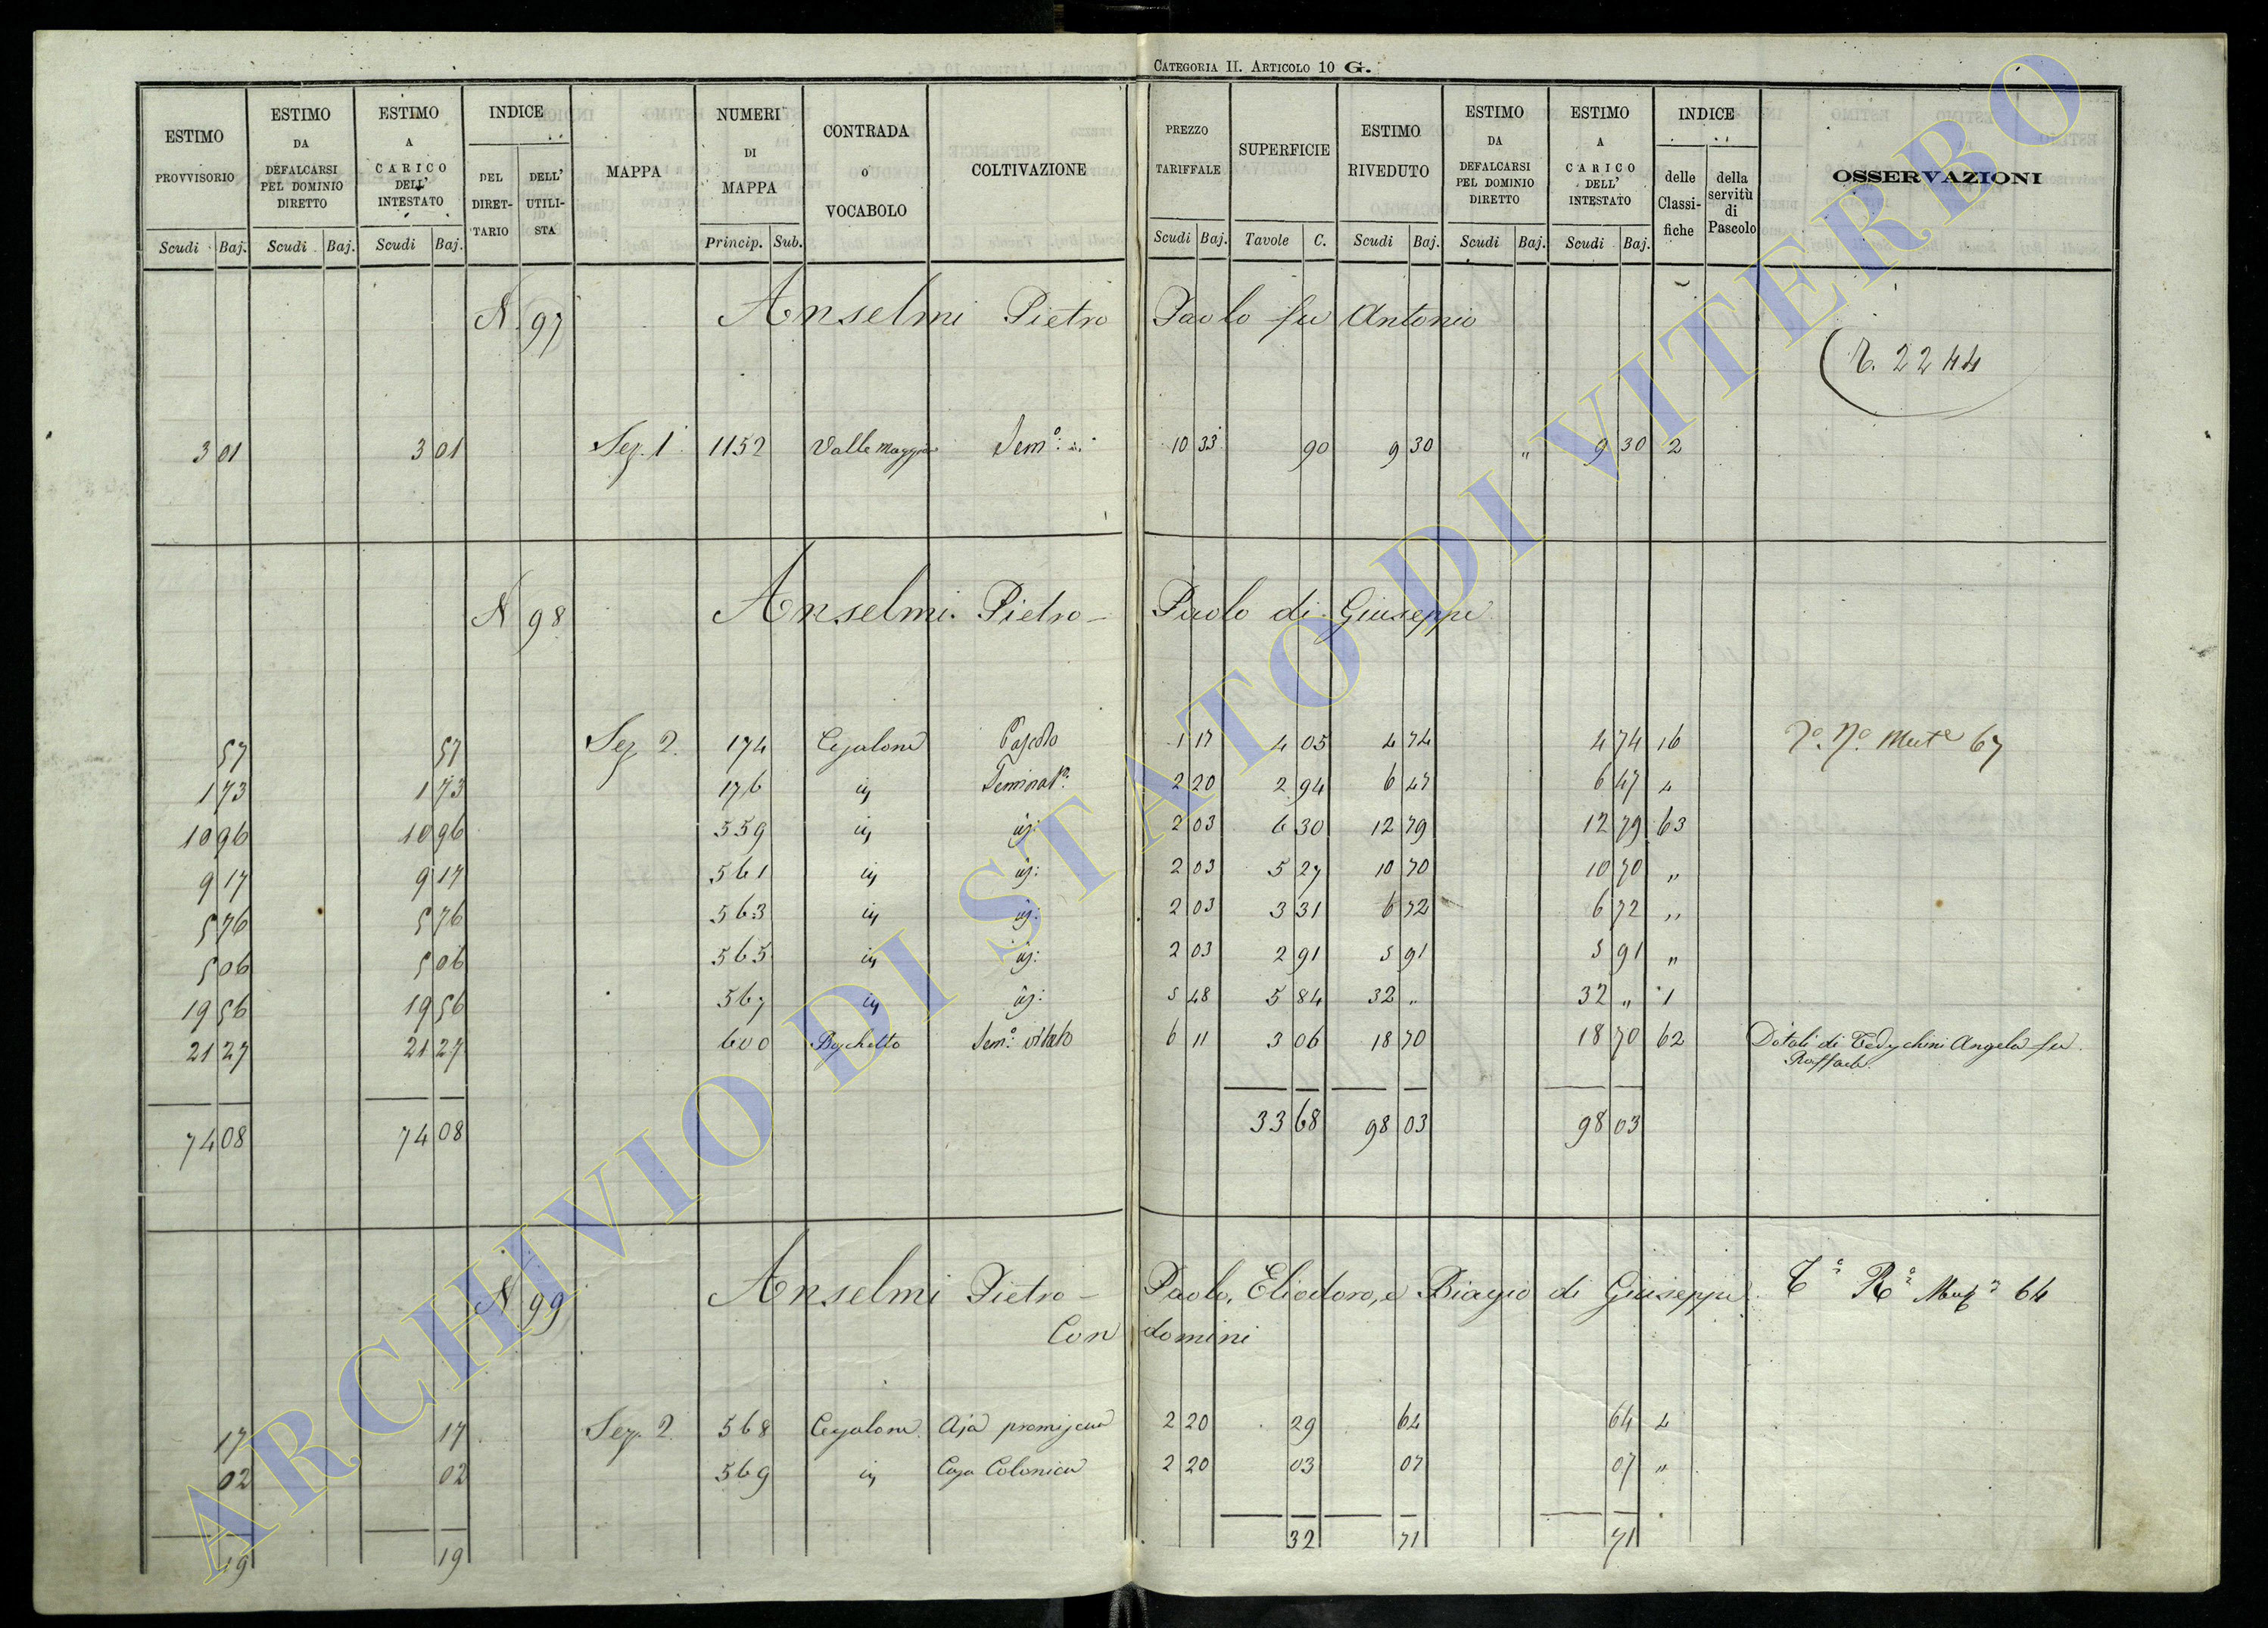 CATEGORIA II. ARTICOLO 10 G.
ESTIMO PROVVISORIO Scudi Baj. ESTIMO DA DEFALCARSI PEL DOMINIO DIRETTO Scudi Baj. ESTIMO A CARICO DELL' INTESTATO Scudi Baj. INDICE DEL DIRETTARIO DELL' UTILISTA MAPPA NUMERI DI MAPPA Princip. Sub. CONTRADA o VOCABOLO COLTIVAZIONE PREZZO TARIFFALE Scudi Baj. SUPERFICIE Tavole C. ESTIMO RIVEDUTO Scudi Baj. ESTIMO DA DEFALCARSI PEL DOMINIO DIRETTO Scudi Baj. ESTIMO A CARICO DELL' INTESTATO Scudi Baj. INDICE delle Classifiche della servitù di Pascolo OSSERVAZIONI
N. 97 Anselmi Pietro Paolo fu Antonio
2244
3 01 3 01 Sez. 1 1152 Valle Maggiore Sem.o 10 33 90 9 30 " 9 30 2
N 98 Anselmi Pietro - Paolo di Giuseppe
57 57 Sez 2. 174 Pascolo 1 17 4 05 4 74 4 74 16 67
1 73 1 73 176 Seminat.o 2 20 2 94 6 47 6 47 4
10 96 10 96 559 2 03 6 30 12 79 12 79 63
9 17 9 17 561 2 03 5 27 10 70 10 70 "
5 76 5 76 563 2 03 3 31 6 72 6 72 "
5 06 5 06 565 2 03 2 91 5 91 5 91 "
19 56 19 56 567 5 48 5 84 32 " 32 " 1
21 27 21 27 600 Sem.o vitato 6 11 3 06 18 70 18 70 62 Dotali di Angela fu
Raffaele
74 08 74 08 33 68 98 03 98 03
N 99 Anselmi Pietro - Paolo, Eliodoro, e Biagio di Giuseppe 64
Condomini
17 17 Sez. 2 568 Aja promiscua 2 20 29 64 64 4
02 02 569 Casa Colonica 2 20 03 07 07 "
19 19 32 71 71
ARCHIVIO DI STATO DI VITERBO